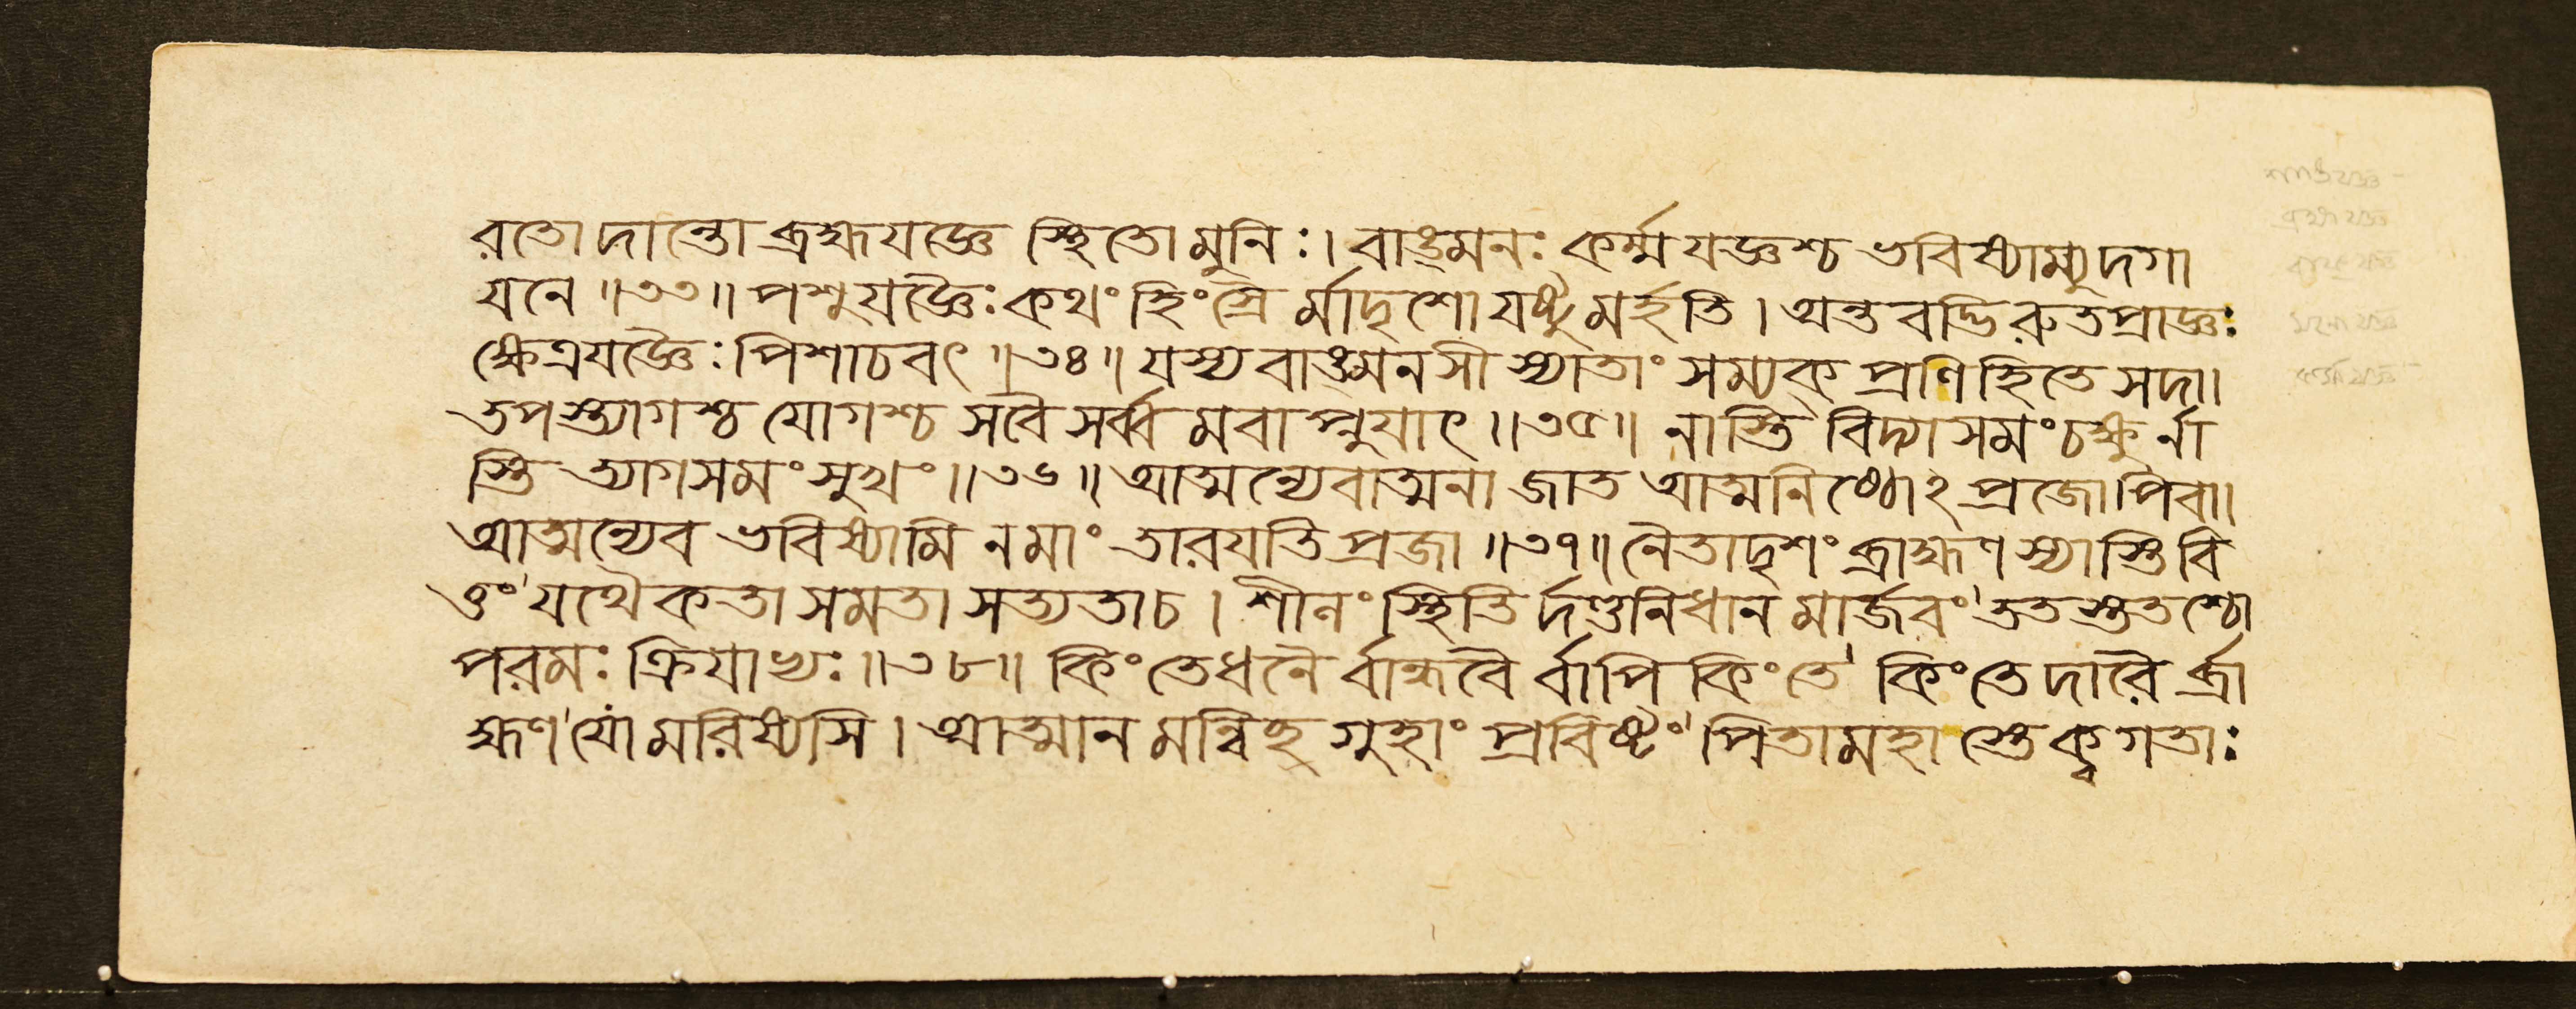 রতো দান্তো ব্রহ্মযজ্ঞে স্থিতো মুনিঃ। বাঙ্মনঃ কর্ম্মযজ্ঞশ্চ ভবিষ্যাম্যুদগা
যনে॥৩৩॥ পশুযজ্ঞৈঃ কথং হিংস্রৈ র্মাদৃশো যষ্টুমর্হতি। অন্তবদ্ভিরুত প্রাজ্ঞঃ
ক্ষেত্রযজ্ঞৈঃ পিশাচবৎ॥৩৪॥ যস্য বাঙ্মনসী স্যাতাং সম্যক্ প্রণিহিতে সদা।
তপস্ত্যাগশ্চ যোগশ্চ সবৈ সর্ব্ব মবাপ্নুযাৎ॥৩৫॥ নাস্তি বিদ্যাসমং চক্ষু র্না
স্তি ত্যাগসমং সুখং॥৩৬॥ আত্মন্যেবাত্মনা জাত আত্মনিষ্ঠোঽপ্রজোপিবা।
আত্মন্যেব ভবিষ্যামি নমাং তারযতি প্রজা॥৩৭॥ নৈতাদৃশং ব্রাহ্মণস্যাস্তি বি
ত্তং যথৈকতা সমতা সত্যতাচ। শীলং স্থিতি র্দণ্ডনিধান মার্জবং ততস্ততশ্চো
পরমঃ ক্রিযাভ্যঃ॥৩৮॥ কিং তে ধনৈ র্বান্ধবৈ র্বাপি কিং তে কিং তে দারৈ র্ব্রা
হ্মণ যো মরিষ্যসি। আত্মান মন্বিচ্ছ গুহাং প্রবিষ্টং পিতামহা স্তে ক্ব গতাঃ